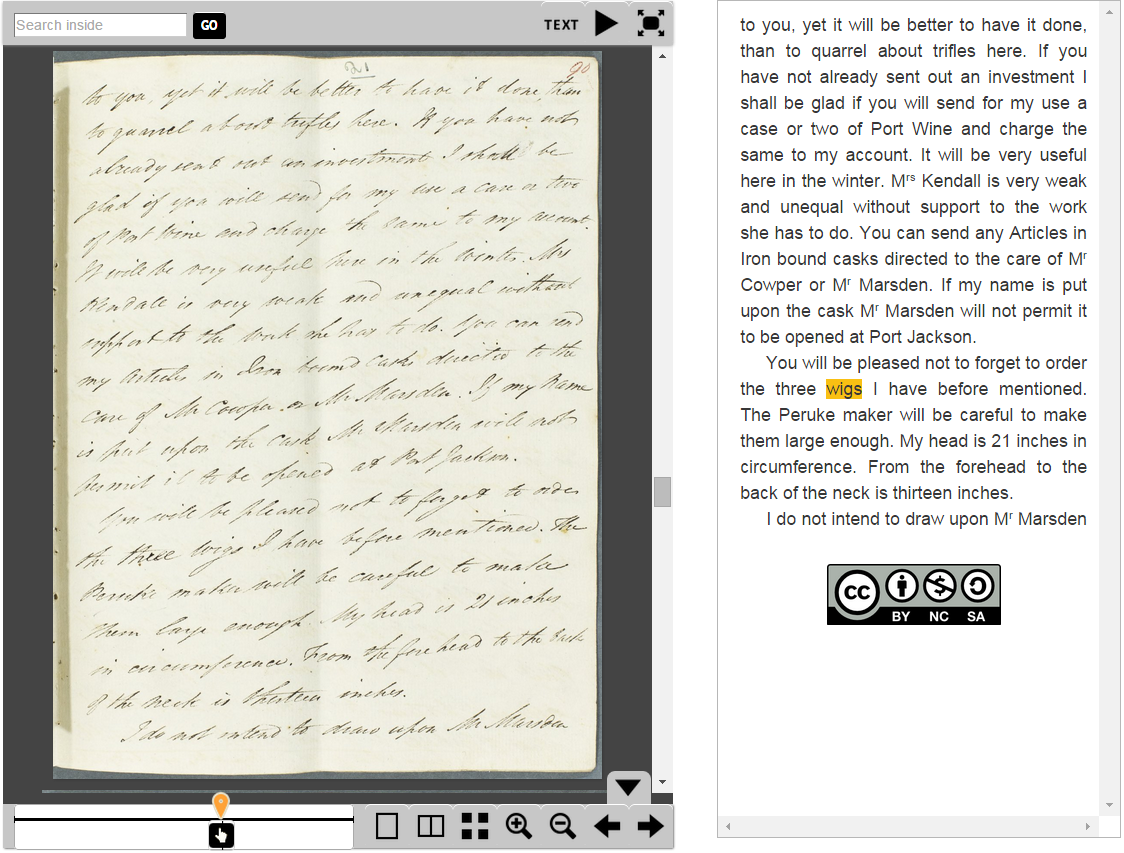 Search inside
GO
TEXT
21
90
to you, yet it will be better to have it done, than
to quarrel about trifles here. If you have not
already sent out an investment I shall be
glad if you will send for my use a case or two
of Port Wine and charge the same to my account.
It will be very useful here in the winter. Mrs
Kendall is very weak and unequal without
support to the work she has to do. You can send
any Articles in Iron bound casks directed to the
care of Mr Cowper or Mr Marsden. If my name
is put upon the cask Mr Marsden will not
permit it to be opened at Port Jackson.
You will be pleased not to forget to order
the three wigs I have before mentioned. The
Peruke maker will be careful to make
them large enough. My head is 21 inches
in circumference. From the forehead to the back
of the neck is thirteen inches.
I do not intend to draw upon Mr Marsden
to you, yet it will be better to have it done,
than to quarrel about trifles here. If you
have not already sent out an investment I
shall be glad if you will send for my use a
case or two of Port Wine and charge the
same to my account. It will be very useful
here in the winter. Mrs Kendall is very weak
and unequal without support to the work
she has to do. You can send any Articles in
Iron bound casks directed to the care of Mr
Cowper or Mr Marsden. If my name is put
upon the cask Mr Marsden will not permit it
to be opened at Port Jackson.
You will be pleased not to forget to order
the three wigs I have before mentioned.
The Peruke maker will be careful to make
them large enough. My head is 21 inches in
circumference. From the forehead to the
back of the neck is thirteen inches.
I do not intend to draw upon Mr Marsden
CC
BY NC SA